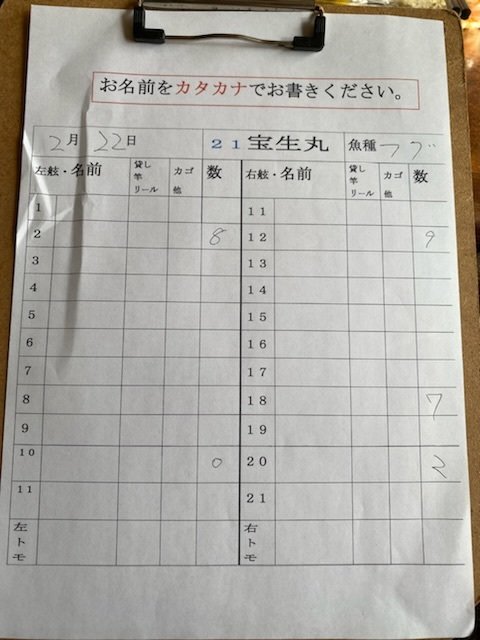 お名前をカタカナでお書きください。
2月 22日 21宝生丸 魚種 フグ
左舷・名前 貸し竿リール カゴ他 数 右舷・名前 貸し竿リール カゴ他 数
1 11
2 8 12 9
3 13
4 14
5 15
6 16
7 17
8 18 7
9 19
10 0 20 2
11 21
左トモ 右トモ